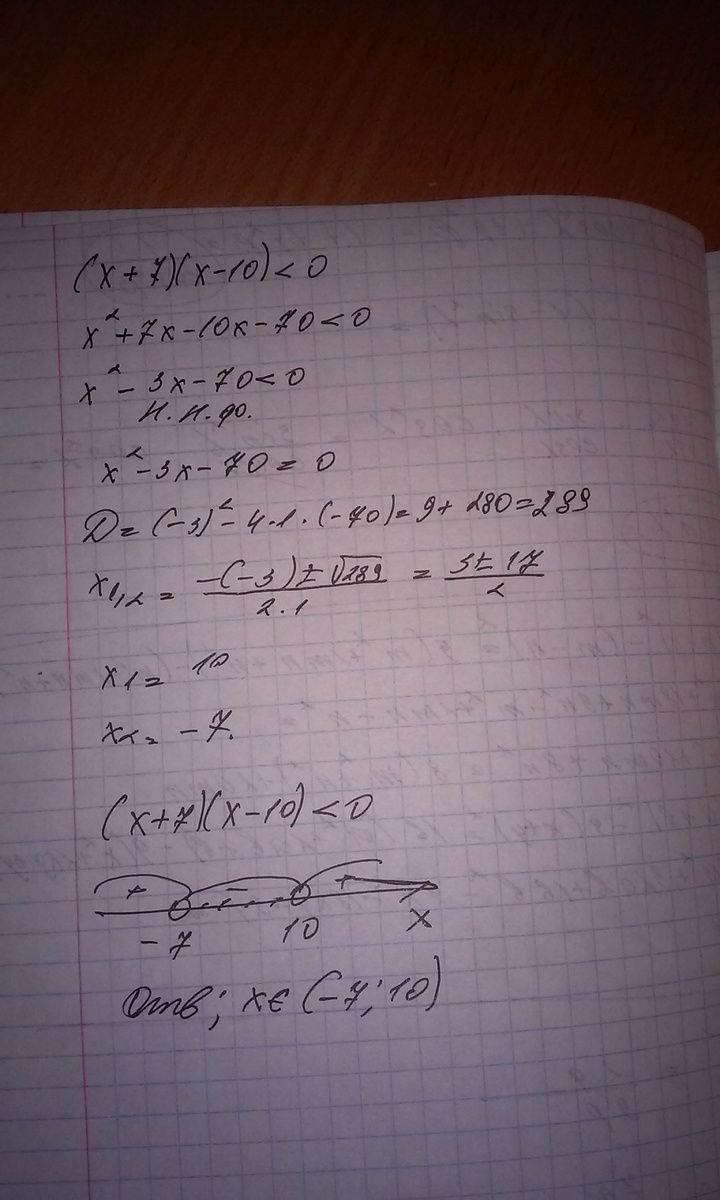 (x+7)(x-10)<0
x²+7x-10x-70<0
x²-3x-70<0
Н.Н.ф.
x²-3x-70=0
D=(-3)²-4·1·(-70)=9+280=289
x₁,₂=(-(-3)±√289)/(2·1)=(3±17)/2
x₁=10
x₂=-7.
(x+7)(x-10)<0
+ - +
-7 10 x
Отв; x∈(-7;10)